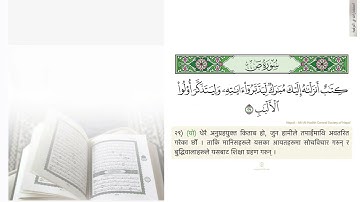 سُورَةُ صٓ
كِتَٰبٌ أَنزَلْنَٰهُ إِلَيْكَ مُبَٰرَكٌ لِّيَدَّبَّرُوٓا۟ ءَايَٰتِهِۦ وَلِيَتَذَكَّرَ أُو۟لُوا۟
ٱلْأَلْبَٰبِ ٢٩
२९) (यो) धेरै अनुग्रहयुक्त किताब हो, जुन हामीले तपाईमाथि अवतरित
गरेका छौं । ताकि मानिसहरूले यसका आयतहरूमा सोचविचार गरून् र
बुद्धिवालाहरूले यसबाट शिक्षा ग्रहण गरून् ।